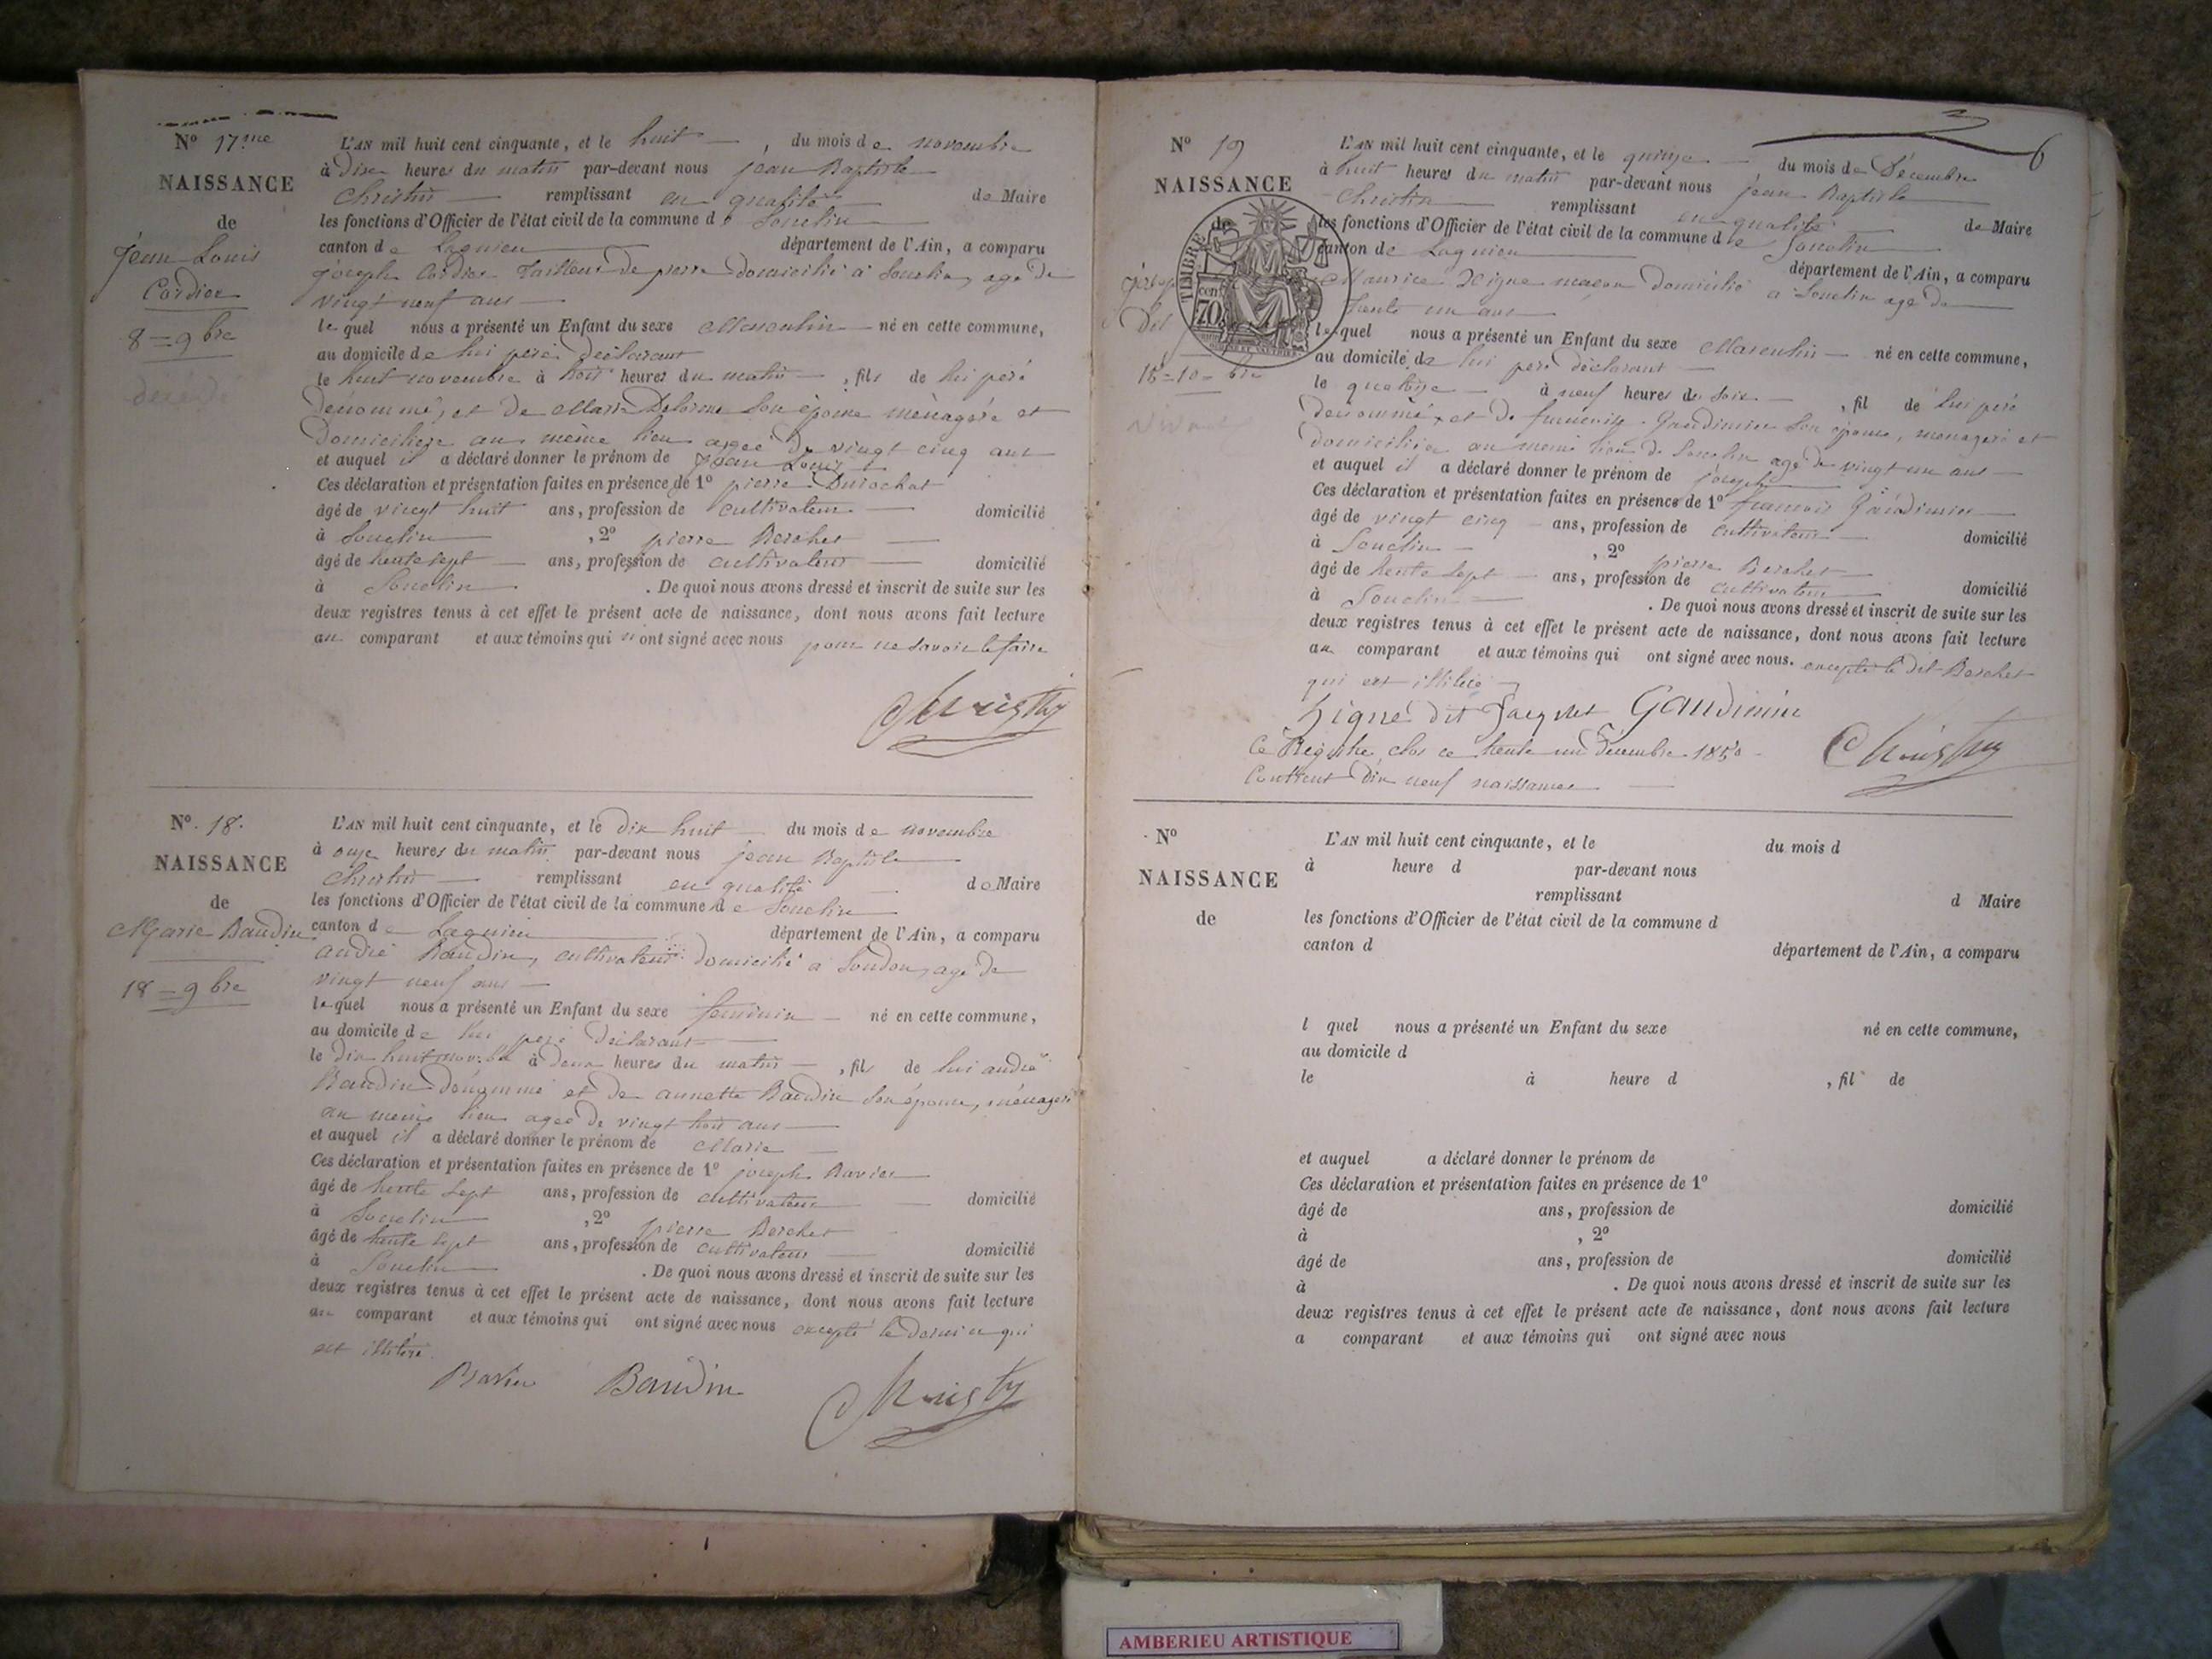 N° 17me
NAISSANCE
de
Jean Louis
Cordier
8 = 9 bre
décédé
L'AN mil huit cent cinquante, et le huit du mois de novembre
à dix heures du matin par-devant nous jean Baptiste
Christin remplissant en qualité de Maire
les fonctions d'Officier de l'état civil de la commune de Souclin
canton de Lagnieu département de l'Ain, a comparu
joseph Cordier Tailleur de pierre domicilié à Souclin, agé de
vingt neuf ans
lequel nous a présenté un Enfant du sexe Masculin né en cette commune,
au domicile de lui père déclarant
le huit novembre à trois heures du matin, fils de lui père
dénommé, et de Marie Delorme son épouse ménagère et
domiciliée au même lieu agée de vingt cinq ans
et auquel il a déclaré donner le prénom de Jean Louis
Ces déclaration et présentation faites en présence de 1° pierre Durochat
âgé de vingt huit ans, profession de cultivateur domicilié
à Souclin, 2° pierre Berchet
âgé de trente sept ans, profession de cultivateur domicilié
à Souclin. De quoi nous avons dressé et inscrit de suite sur les
deux registres tenus à cet effet le présent acte de naissance, dont nous avons fait lecture
au comparant et aux témoins qui n'ont signé avec nous pour ne savoir le faire
Christin
N°. 18.
NAISSANCE
de
Marie Baudin
18 = 9 bre
L'AN mil huit cent cinquante, et le dix huit du mois de novembre
à onze heures du matin par-devant nous jean Baptiste
Christin remplissant en qualité de Maire
les fonctions d'Officier de l'état civil de la commune de Souclin
canton de Lagnieu département de l'Ain, a comparu
andré Baudin, cultivateur domicilié à Soudon, agé de
vingt neuf ans
lequel nous a présenté un Enfant du sexe feminin né en cette commune,
au domicile de lui père déclarant
le dix huit nov.bre à deux heures du matin, fils de lui andré
Baudin dénommé et de annette Baudin son épouse, ménagère
au même lieu agée de vingt trois ans
et auquel il a déclaré donner le prénom de Marie
Ces déclaration et présentation faites en présence de 1° joseph Ravier
âgé de trente sept ans, profession de cultivateur domicilié
à Souclin, 2° pierre Berchet
âgé de trente sept ans, profession de cultivateur domicilié
à Souclin. De quoi nous avons dressé et inscrit de suite sur les
deux registres tenus à cet effet le présent acte de naissance, dont nous avons fait lecture
au comparant et aux témoins qui ont signé avec nous excepté le dernier qui
est illitéré.
Ravier Baudin Christin
6
N° 19
NAISSANCE
de
TIMBRE
70 cen
15 = 10 = bre
Vivant
L'AN mil huit cent cinquante, et le quinze du mois de Décembre
à huit heures du matin par-devant nous jean Baptiste
Christin remplissant en qualité de Maire
les fonctions d'Officier de l'état civil de la commune de Souclin
canton de Lagnieu département de l'Ain, a comparu
Maurice maçon domicilié à Souclin agé de
trente un ans
lequel nous a présenté un Enfant du sexe Masculin né en cette commune,
au domicile de lui père déclarant
le quatorze à neuf heures du soir, fil de lui père
dénommé, et de Gaudimier son épouse, ménagère et
domiciliée au même lieu de Souclin agé de vingt un ans
et auquel il a déclaré donner le prénom de joseph
Ces déclaration et présentation faites en présence de 1° françois Gaudimier
âgé de vingt cinq ans, profession de cultivateur domicilié
à Souclin, 2° pierre Berchet
âgé de trente sept ans, profession de cultivateur domicilié
à Souclin. De quoi nous avons dressé et inscrit de suite sur les
deux registres tenus à cet effet le présent acte de naissance, dont nous avons fait lecture
au comparant et aux témoins qui ont signé avec nous. excepté le dit Berchet
qui est illitéré
dit Jacquet Gaudimier
Ce Registre clos ce trente un décembre 1850
Contient dix neuf naissances
Christin
N°
NAISSANCE
de
L'AN mil huit cent cinquante, et le du mois d
à heure d par-devant nous
remplissant d Maire
les fonctions d'Officier de l'état civil de la commune d
canton d département de l'Ain, a comparu
l quel nous a présenté un Enfant du sexe né en cette commune,
au domicile d
le à heure d , fil de
et auquel a déclaré donner le prénom de
Ces déclaration et présentation faites en présence de 1°
âgé de ans, profession de domicilié
à , 2°
âgé de ans, profession de domicilié
à . De quoi nous avons dressé et inscrit de suite sur les
deux registres tenus à cet effet le présent acte de naissance, dont nous avons fait lecture
a comparant et aux témoins qui ont signé avec nous
AMBERIEU ARTISTIQUE